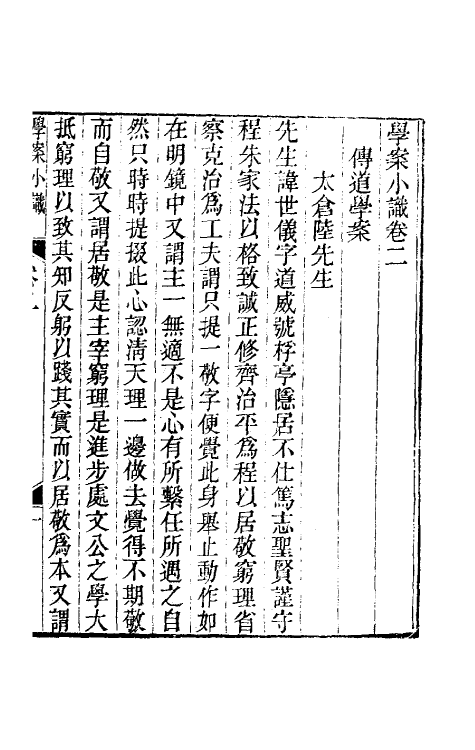 學案小識卷二
傳道學案
太倉陸先生
先生諱世儀字道威號桴亭隱居不仕篤志聖賢謹守
程朱家法以格致誠正修齊治平爲程以居敬窮理省
察克治爲工夫謂只提一敬字便覺此身舉止動作如
在明鏡中又謂主一無適不是心有所繫任所遇之自
然只時時提掇此心認淸天理一邊做去覺得不期敬
而自敬又謂居敬是主宰窮理是進步處文公之學大
抵窮理以致其知反躬以踐其實而以居敬爲本又謂
學案小識
卷二
一